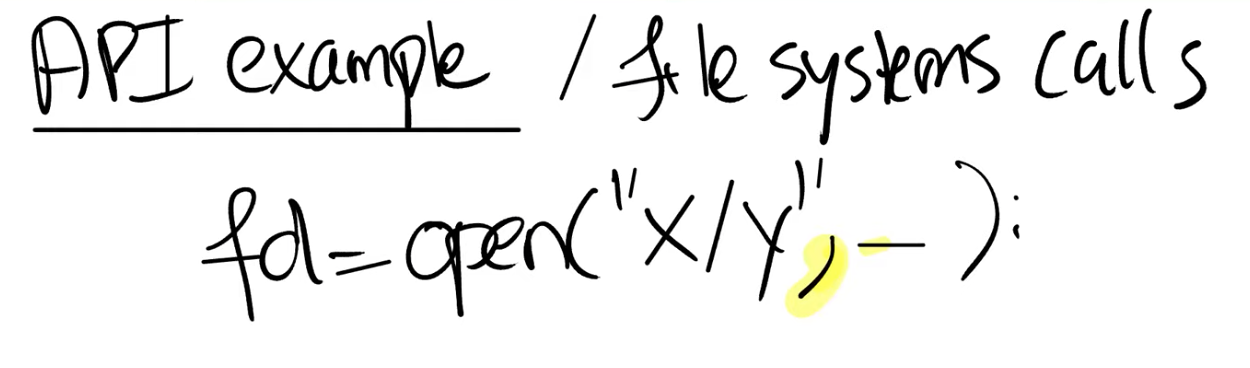 API example / file systems calls
fd=open("X/Y", — );